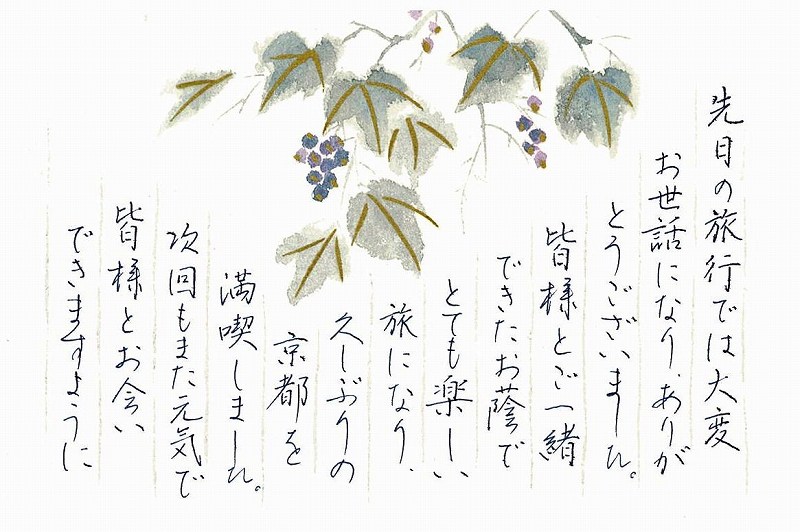 先日の旅行では大変
お世話になり、ありが
とうございました。
皆様とご一緒
できたお蔭で
とても楽しい
旅になり、
久しぶりの
京都を
満喫しました。
次回もまた元気で
皆様とお会い
できますように